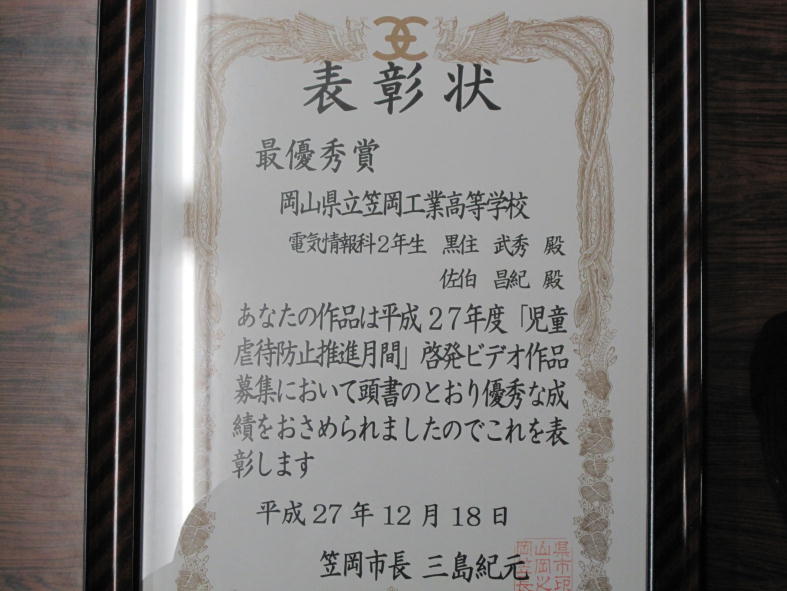 表彰状
最優秀賞
岡山県立笠岡工業高等学校
電気情報科2年生 黒住 武秀 殿
佐伯 昌紀 殿
あなたの作品は平成27年度「児童
虐待防止推進月間」啓発ビデオ作品
募集において頭書のとおり優秀な成
績をおさめられましたのでこれを表
彰します
平成27年12月18日
笠岡市長 三島紀元